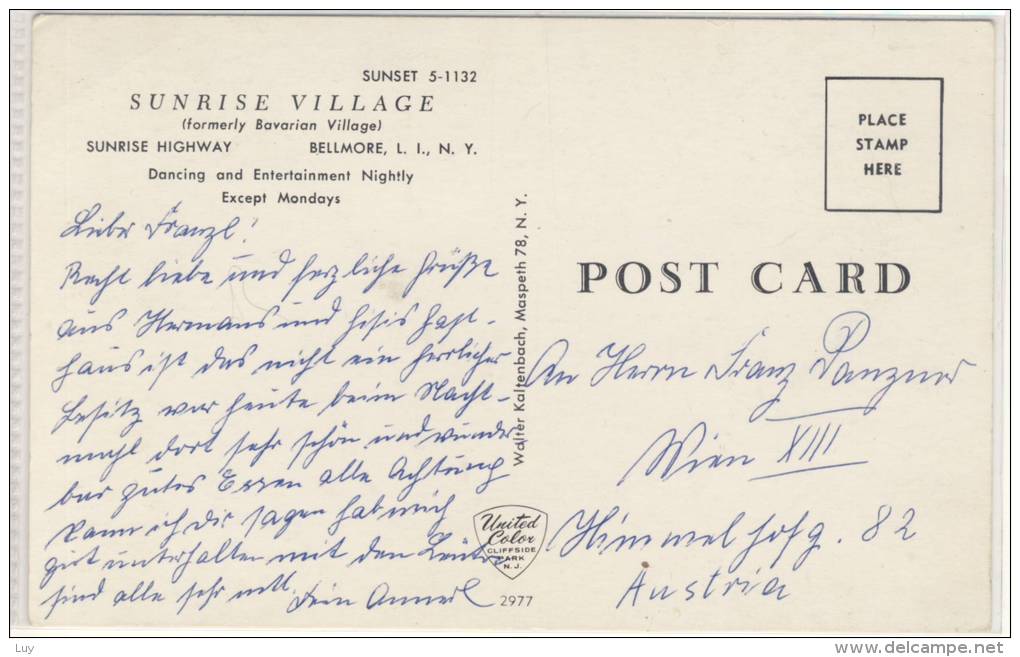 SUNSET 5-1132
SUNRISE VILLAGE
(formerly Bavarian Village)
SUNRISE HIGHWAY BELLMORE, L. I., N. Y.
Dancing and Entertainment Nightly
Except Mondays
Lieber Franzl!
Recht liebe und herzliche Grüße
aus Hermans und Gast-
haus ist das nicht ein herrlicher
Besitz war heute beim Nacht-
mahl dort sehr schön und wunder
bar gutes Essen alle Achtung
kann ich dir sagen hab mich
gut unterhalten mit den Leuten
sind alle sehr nett. Dein Annerl
Walter Kaltenbach, Maspeth 78, N. Y.
United
Color
CLIFFSIDE
PARK
N. J.
2977
PLACE
STAMP
HERE
POST CARD
An Herrn Franz Panzner
Wien XIII
Himmelhofg. 82
Austria
Luy
www.delcampe.net